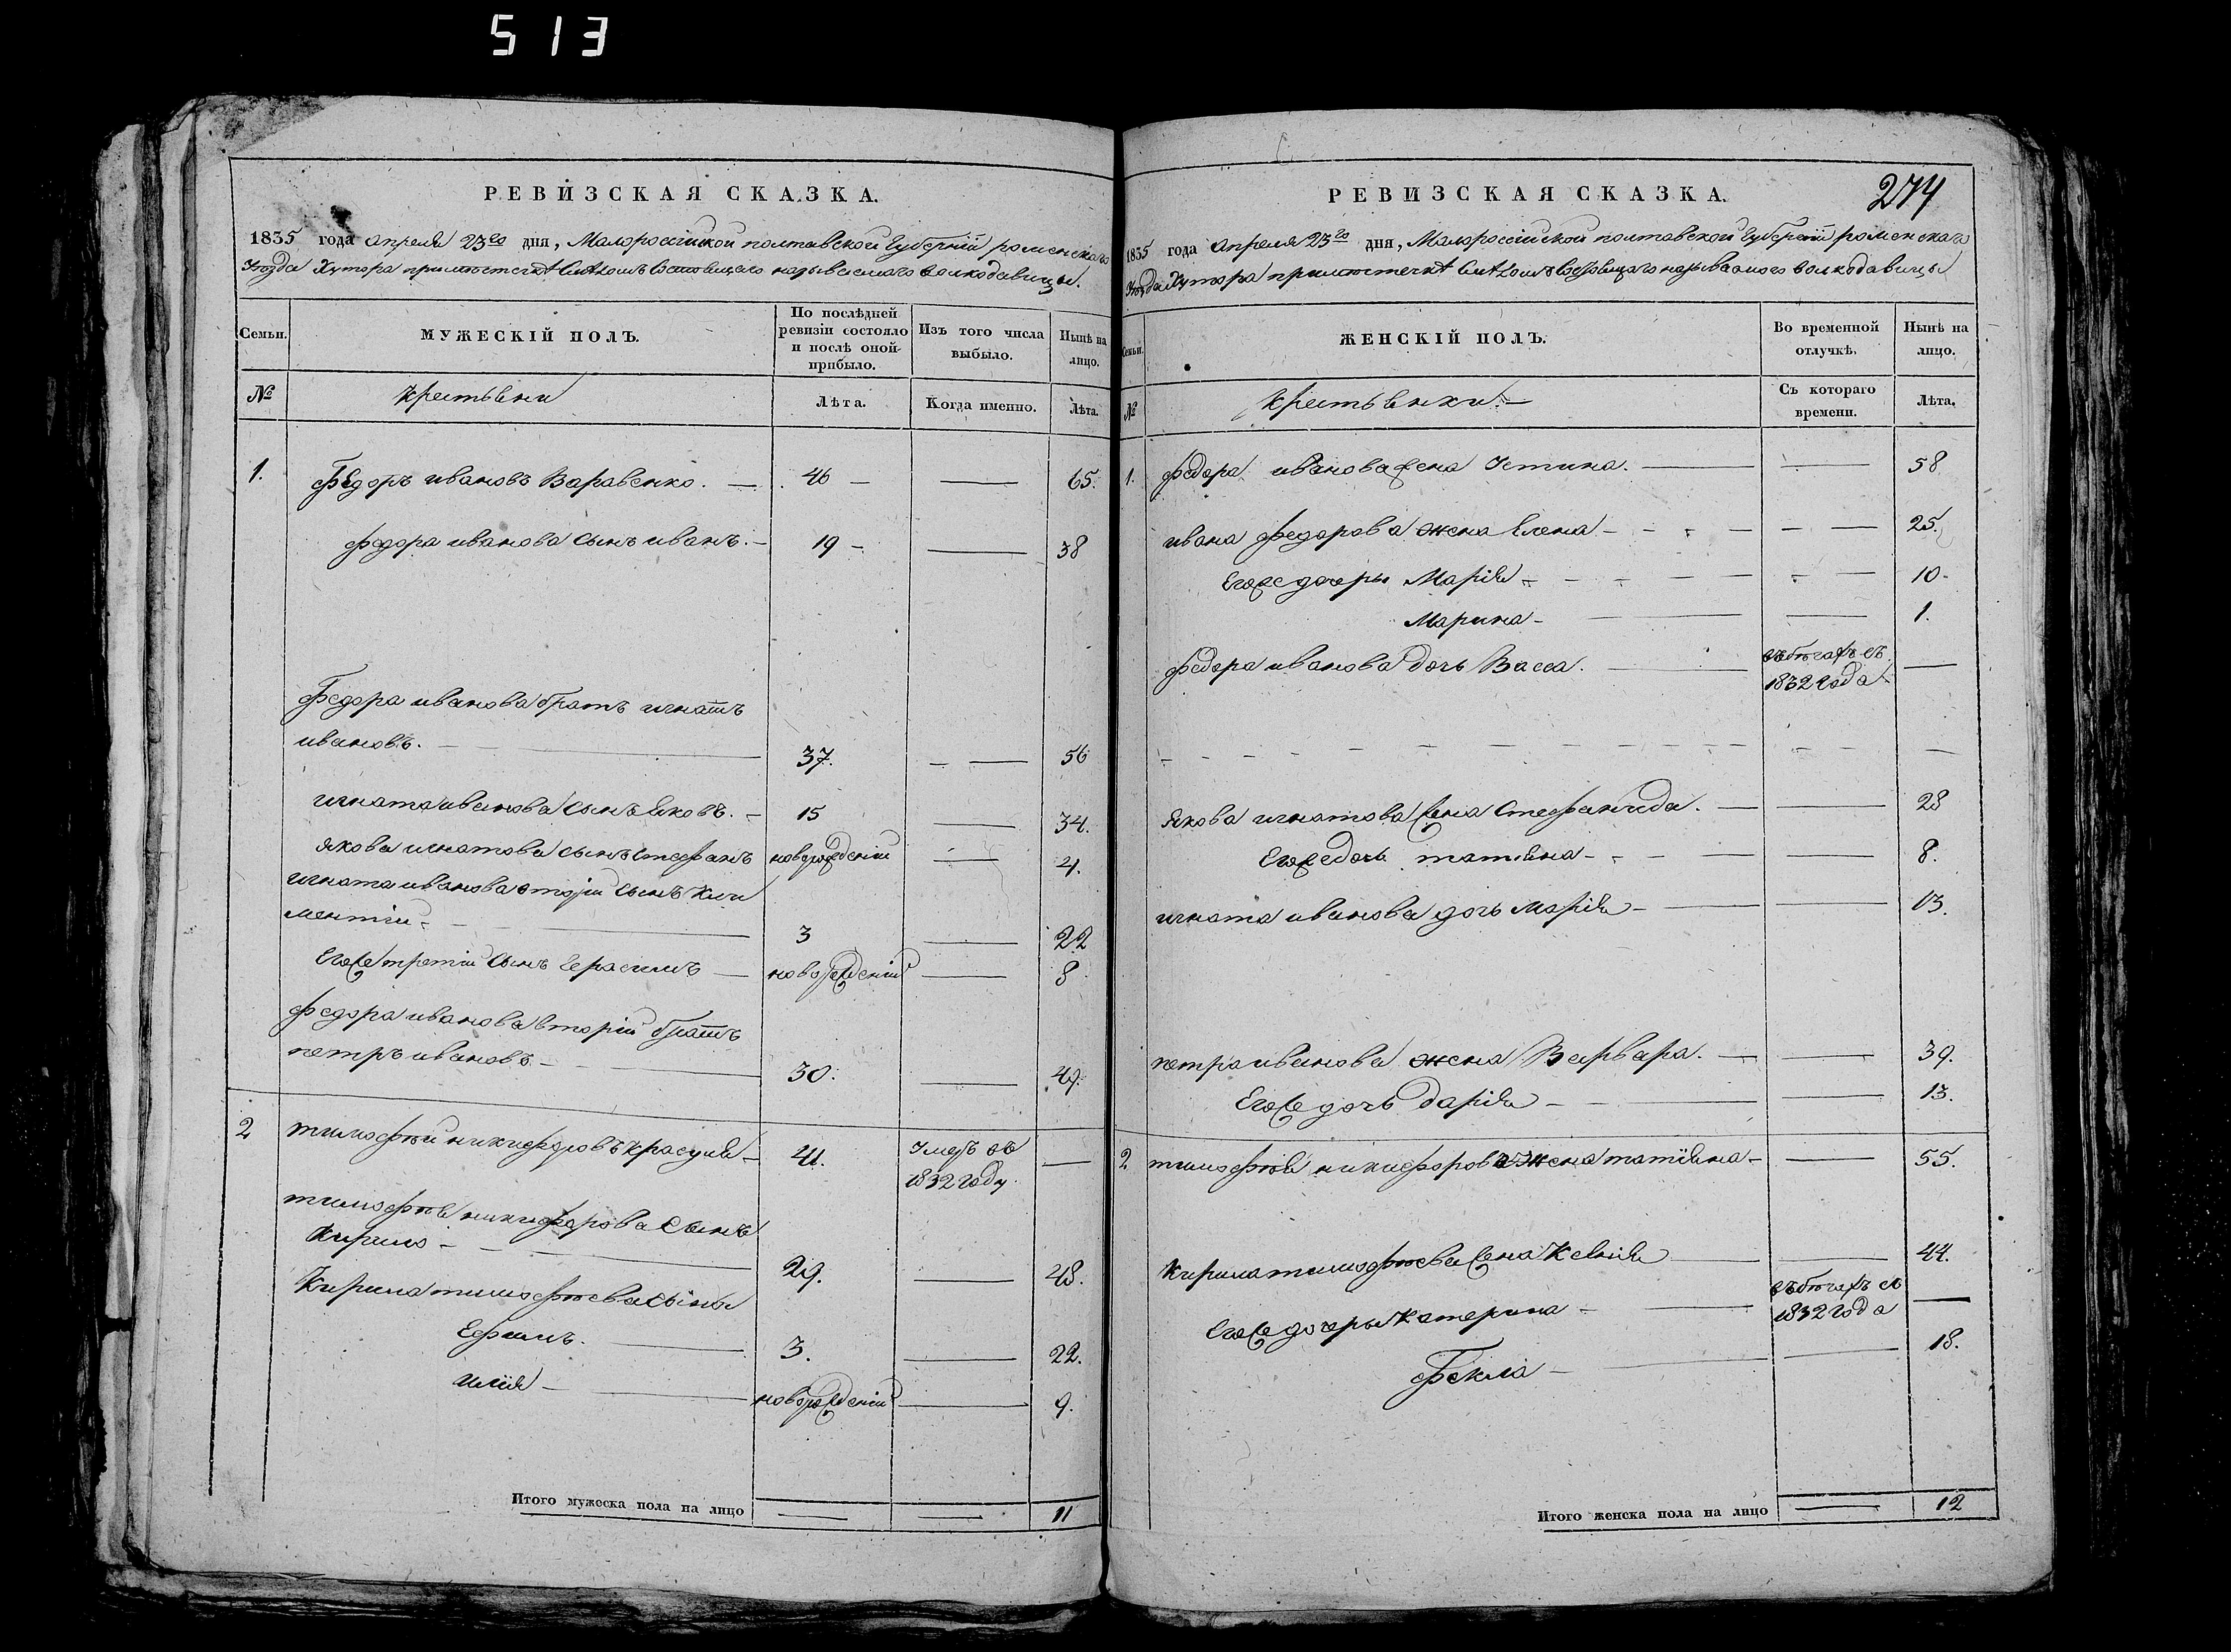 513
РЕВИЗСКАЯ СКАЗКА.
1835 года апреля 23го дня, Малороссійской полтавской Губерній роменскаго
Уѣзда Хутора называемаго волкодавицы.
Семьи.
МУЖЕСКІЙ ПОЛЪ.
По послѣдней ревизіи состояло и послѣ оной прибыло.
Изъ того числа выбыло.
Нынѣ на лицо.
№
крестьяни
Лѣта.
Когда именно.
Лѣта.
1. Федоръ ивановъ Варавенко. 46 65.
федора иванова сынъ иванъ. 19 38
Федора иванова братъ игнатъ
ивановъ. 37. 56
игната иванова сынъ яковъ. 15 34.
якова игнатова сынъ стефанъ новорожденій 4.
игната иванова вторій сынъ кли
ментій 3 22
Егоже третій сынъ Герасимъ новорожденій 8
федора иванова вторій братъ
петръ ивановъ 30. 49.
2 тимофѣй никифоровъ красуля 41. Умеръ въ
1832 году.
тимофѣя никифорова сынъ
Кирило 29. 48.
Кирила тимофѣева сыны
Ефимъ. 3. 22.
илія новорожденій 9.
Итого мужеска пола на лицо 11
РЕВИЗСКАЯ СКАЗКА. 274
1835 года апреля 23го дня, Малороссійской полтавской Губерній роменскаго
Уѣзда Хутора называемого волкодавицы
Семьи.
ЖЕНСКІЙ ПОЛЪ.
Во временной отлучкѣ.
Нынѣ на лицо.
№
крестьянки
Съ котораго времени.
Лѣта.
1. федора иванова жена Устина. 58
ивана федорова жена Елена 25.
Егоже дочери Марія 10
Марина 1.
федора иванова дочь Васса. въ бѣгахъ съ
1832 года
якова игнатова жена Стефанида. 28
Егоже дочь татіяна 8.
игната иванова дочь Марія 13.
петра иванова жена Варвара. 39.
Егоже дочь дарія 13.
2 тимофѣя никифорова жена татіяна 55.
Кирила тимофѣева жена Ксенія 44.
Егоже дочери Катерина въ бѣгахъ съ
1832 года
Фекла 18.
Итого женска пола на лицо 12